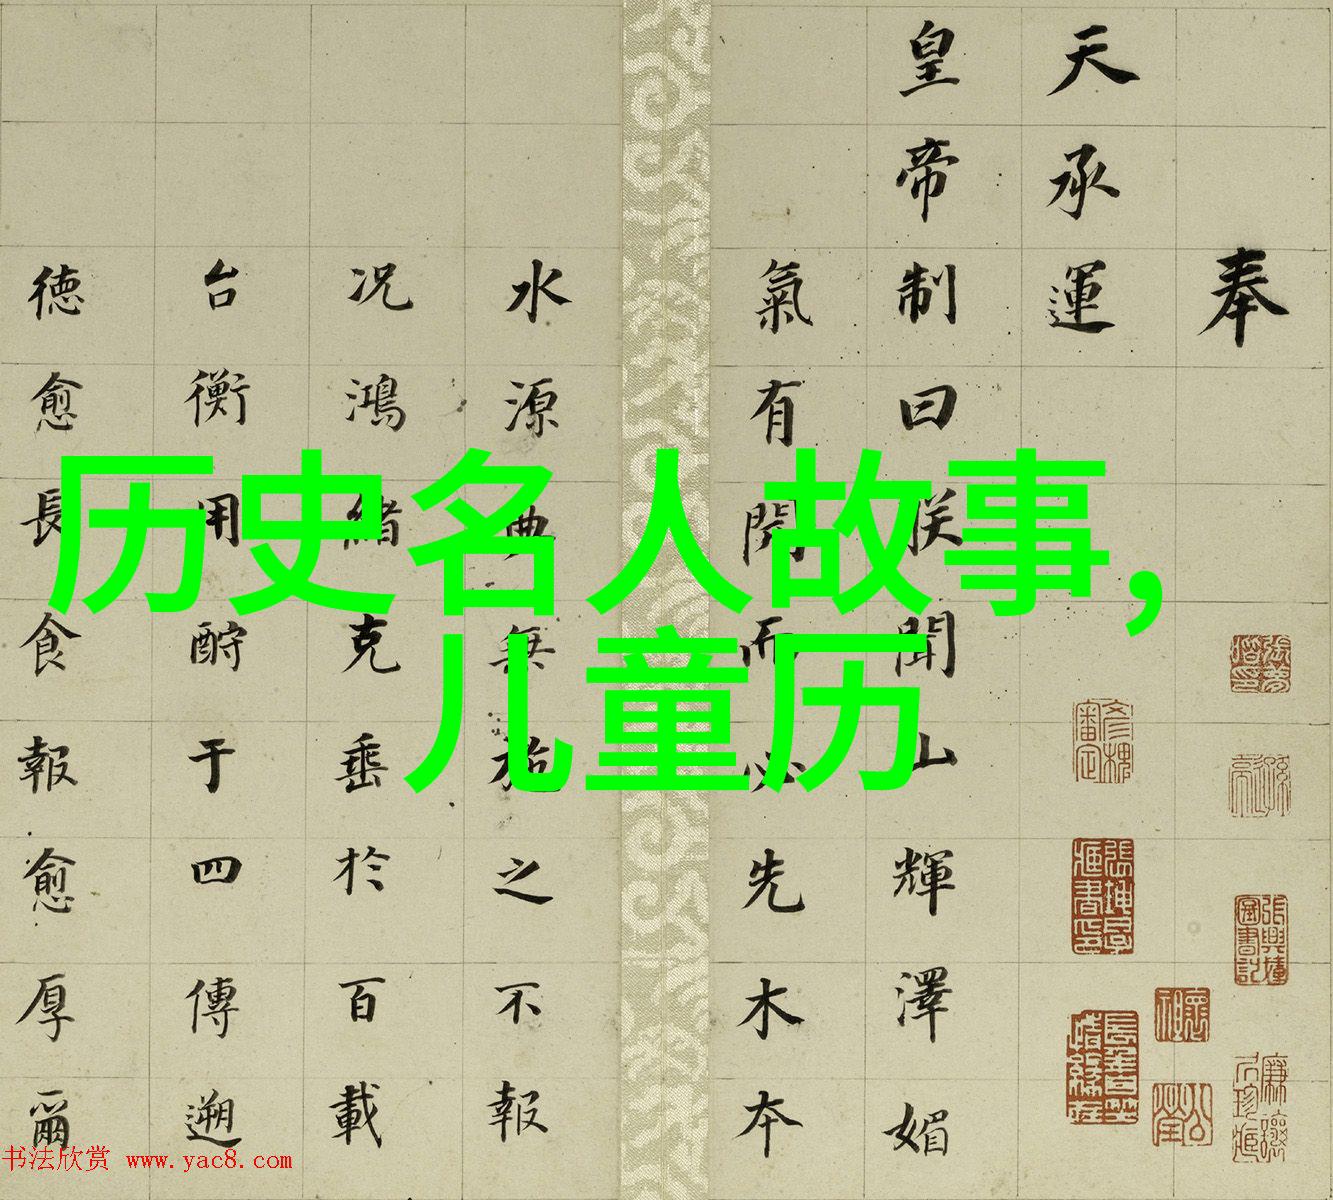 奉
天承運
皇帝制曰朕聞山輝澤媚
氣有開而必先木本
水源典無施之不報
况鴻緒克垂於百載
台衡用酧于四傳遡
徳愈長食報愈厚爾
历史名人故事，
儿童历
书法欣赏 www.yac8.com